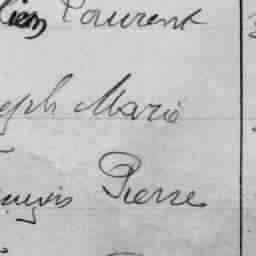 lien Laurent
seph Marie
ançois Pierre